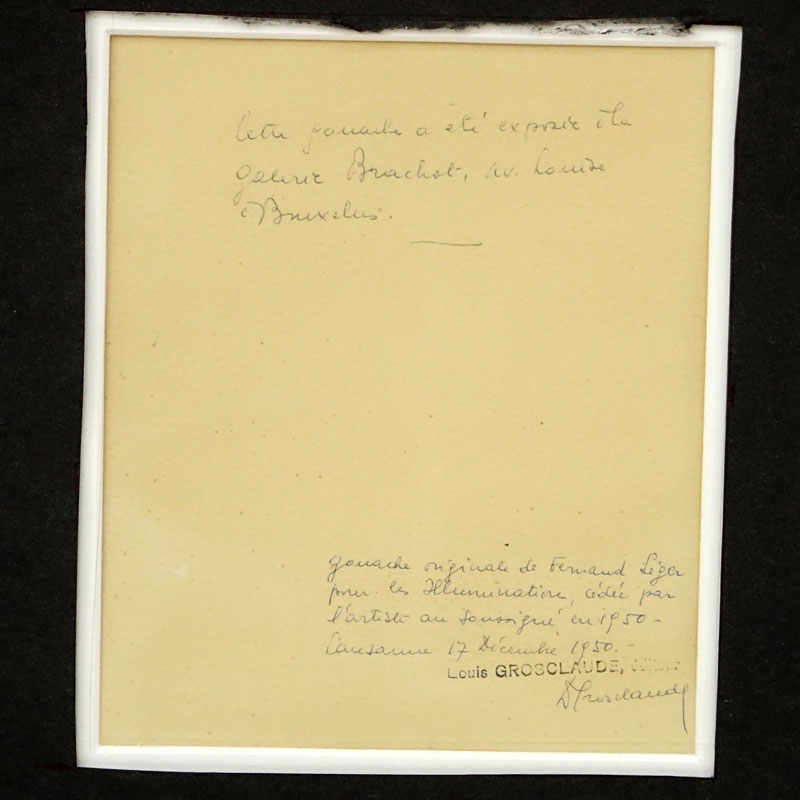 Cette gouache a été exposée à la
galerie Brachot, av. Louise
à Bruxelles.
gouache originale de Fernand Léger
pour les Illuminations, cédée par
l'artiste au soussigné en 1950 -
Lausanne 17 Décembre 1950. -
Louis GROSCLAUDE, éditeur
LGrosclaude